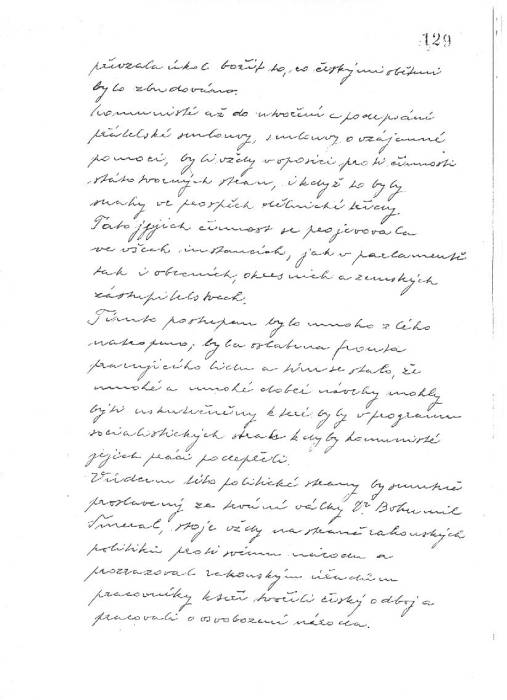 129
převzala úkol bořit to, co českými oběťmi
bylo zbudováno.
Komunisté až do utvoření a podepsání
přátelské smlouvy, smlouvy o vzájemné
pomoci, byli vždy v oposici proti činnosti
státotvorných stran, i když to byly
snahy ve prospěch dělnické třídy.
Tato jejich činnost se projevovala
ve všech instancích, jak v parlamentě
tak i obecních, okresních a zemských
zastupitelstvech.
Tímto postupem bylo mnoho zlého
natropeno; byla oslabena fronta
pracujícího lidu a tím se stalo, že
mnohé a mnohé dobré návrhy mohly
býti uskutečněny které byly v programu
socialistických stran kdyby komunisté
jejich práci podepřeli.
Vůdcem této politické strany byl smutně
proslavený za první války Dr Bohumil
Šmeral, stoje vždy na straně rakouských
politiků proti svému národu a
prozrazoval rakouským úřadům
pracovníky kteří tvořili český odboj a
pracovali o osvobození národa.